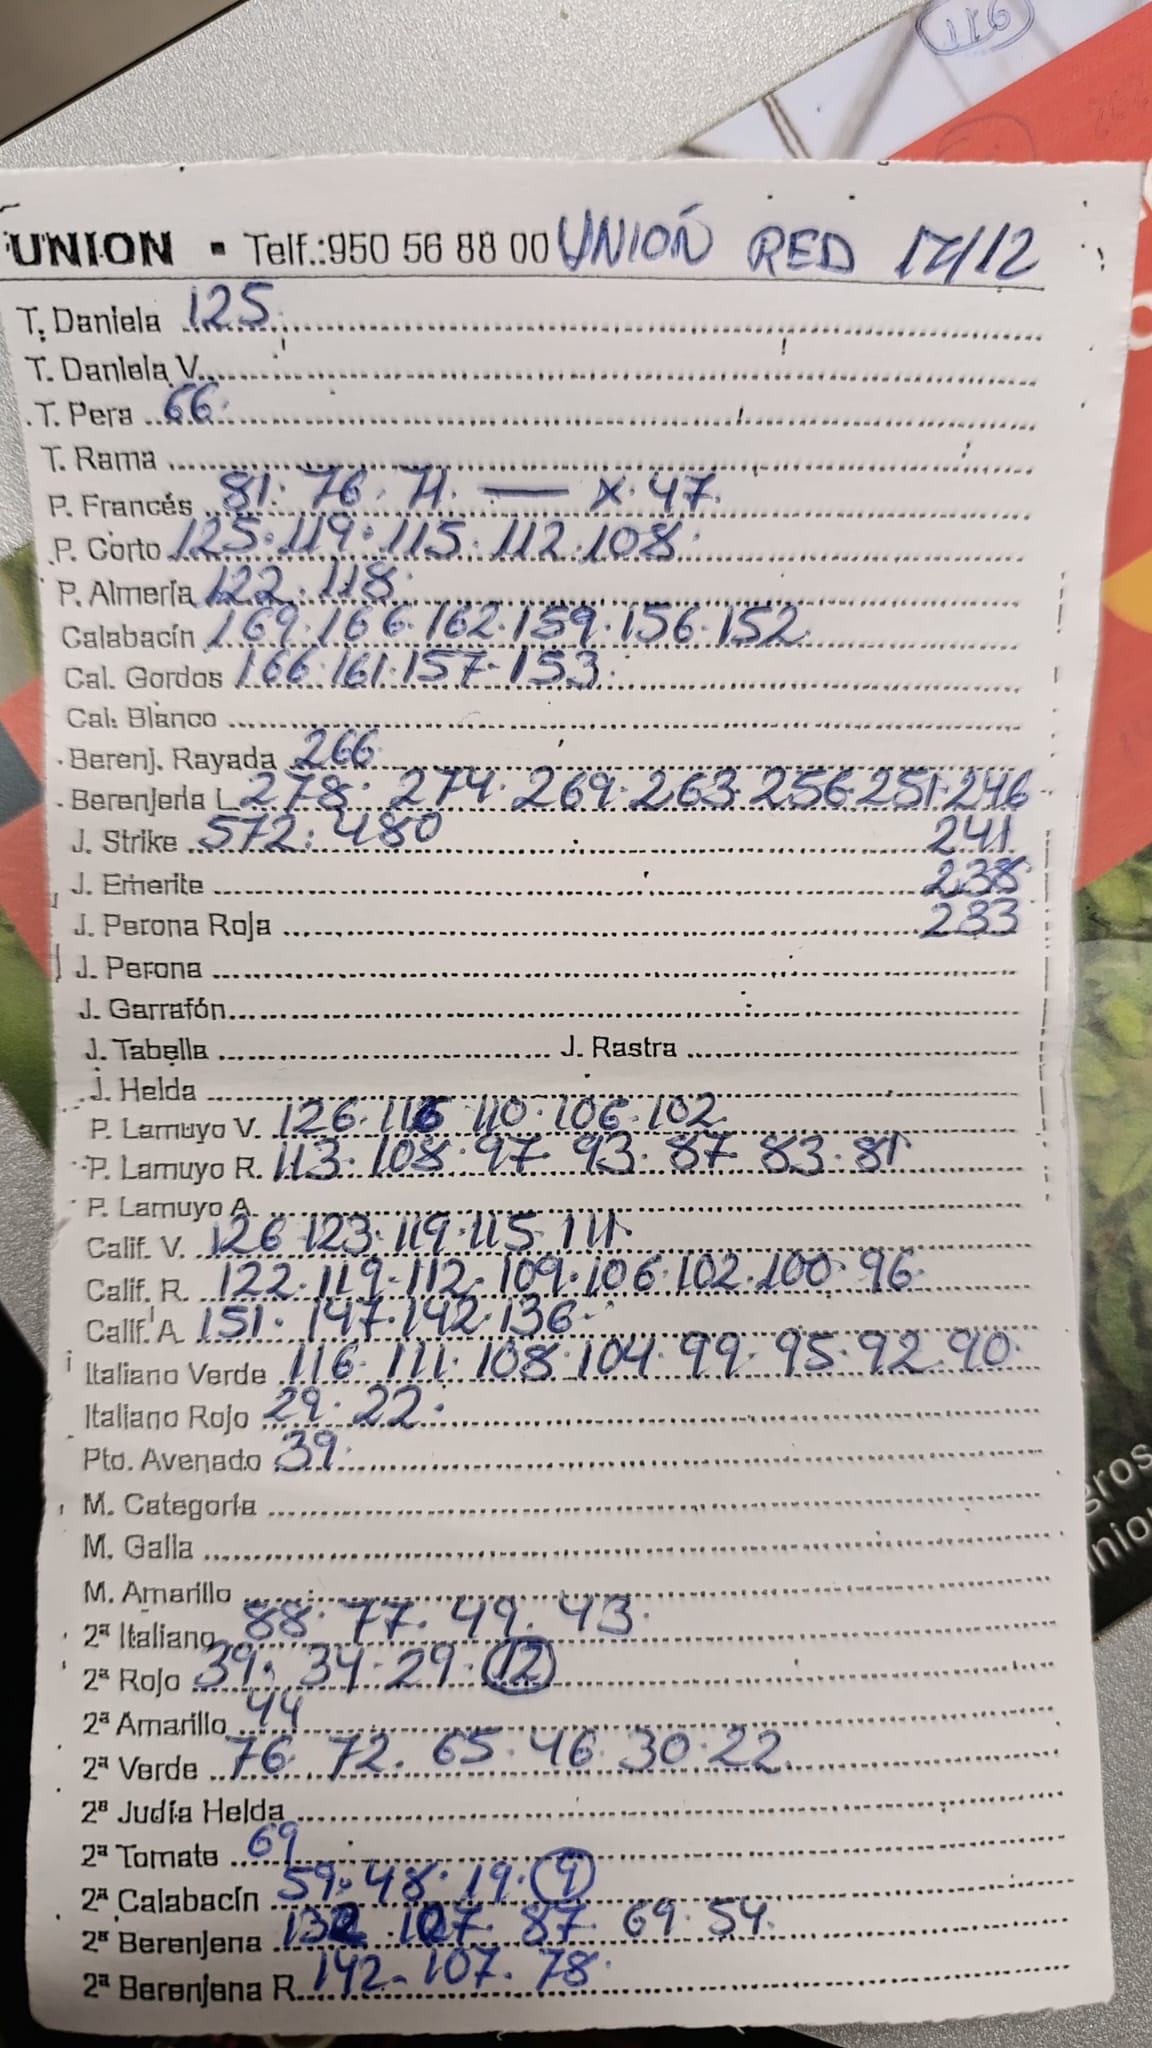 116
UNION ▪ Telf.:950 56 88 00 UNIÓN RED 17/12
T. Daniela 125
T. Daniela V.
T. Pera 66
T. Rama
P. Francés 81. 76. 71. — X. 47.
P. Corto 125. 119. 115. 112. 108.
P. Almería 122. 118.
Calabacín 169. 166. 162. 159. 156. 152.
Cal. Gordos 166. 161. 157. 153.
Cal. Blanco
Berenj. Rayada 266.
Berenjena L 278. 274. 269. 263. 256. 251. 246
J. Strike 572. 480 241
J. Emerite 238
J. Perona Roja 233
J. Perona
J. Garrafón
J. Tabella J. Rastra
J. Helda
P. Lamuyo V. 126. 116 110. 106. 102
P. Lamuyo R. 113. 108. 97. 93. 87. 83. 81
P. Lamuyo A.
Calif. V. 126 123. 119. 115. 111.
Calif. R. 122. 119. 112. 109. 106. 102. 100. 96.
Calif. A 151. 147. 142. 136.
Italiano Verde 116. 111. 108. 104. 99. 95. 92. 90.
Italiano Rojo 29. 22.
Pto. Avenado 39.
M. Categoría
M. Galla
M. Amarillo
2ª Italiano 88. 77. 49. 43.
2ª Rojo 39. 34. 29. 12
2ª Amarillo 44
2ª Verde 76. 72. 65. 46. 30. 22.
2ª Judía Helda
2ª Tomate 69
2ª Calabacín 59. 48. 19. 9
2ª Berenjena 132. 107. 87. 69. 54.
2ª Berenjena R. 142. 107. 78.